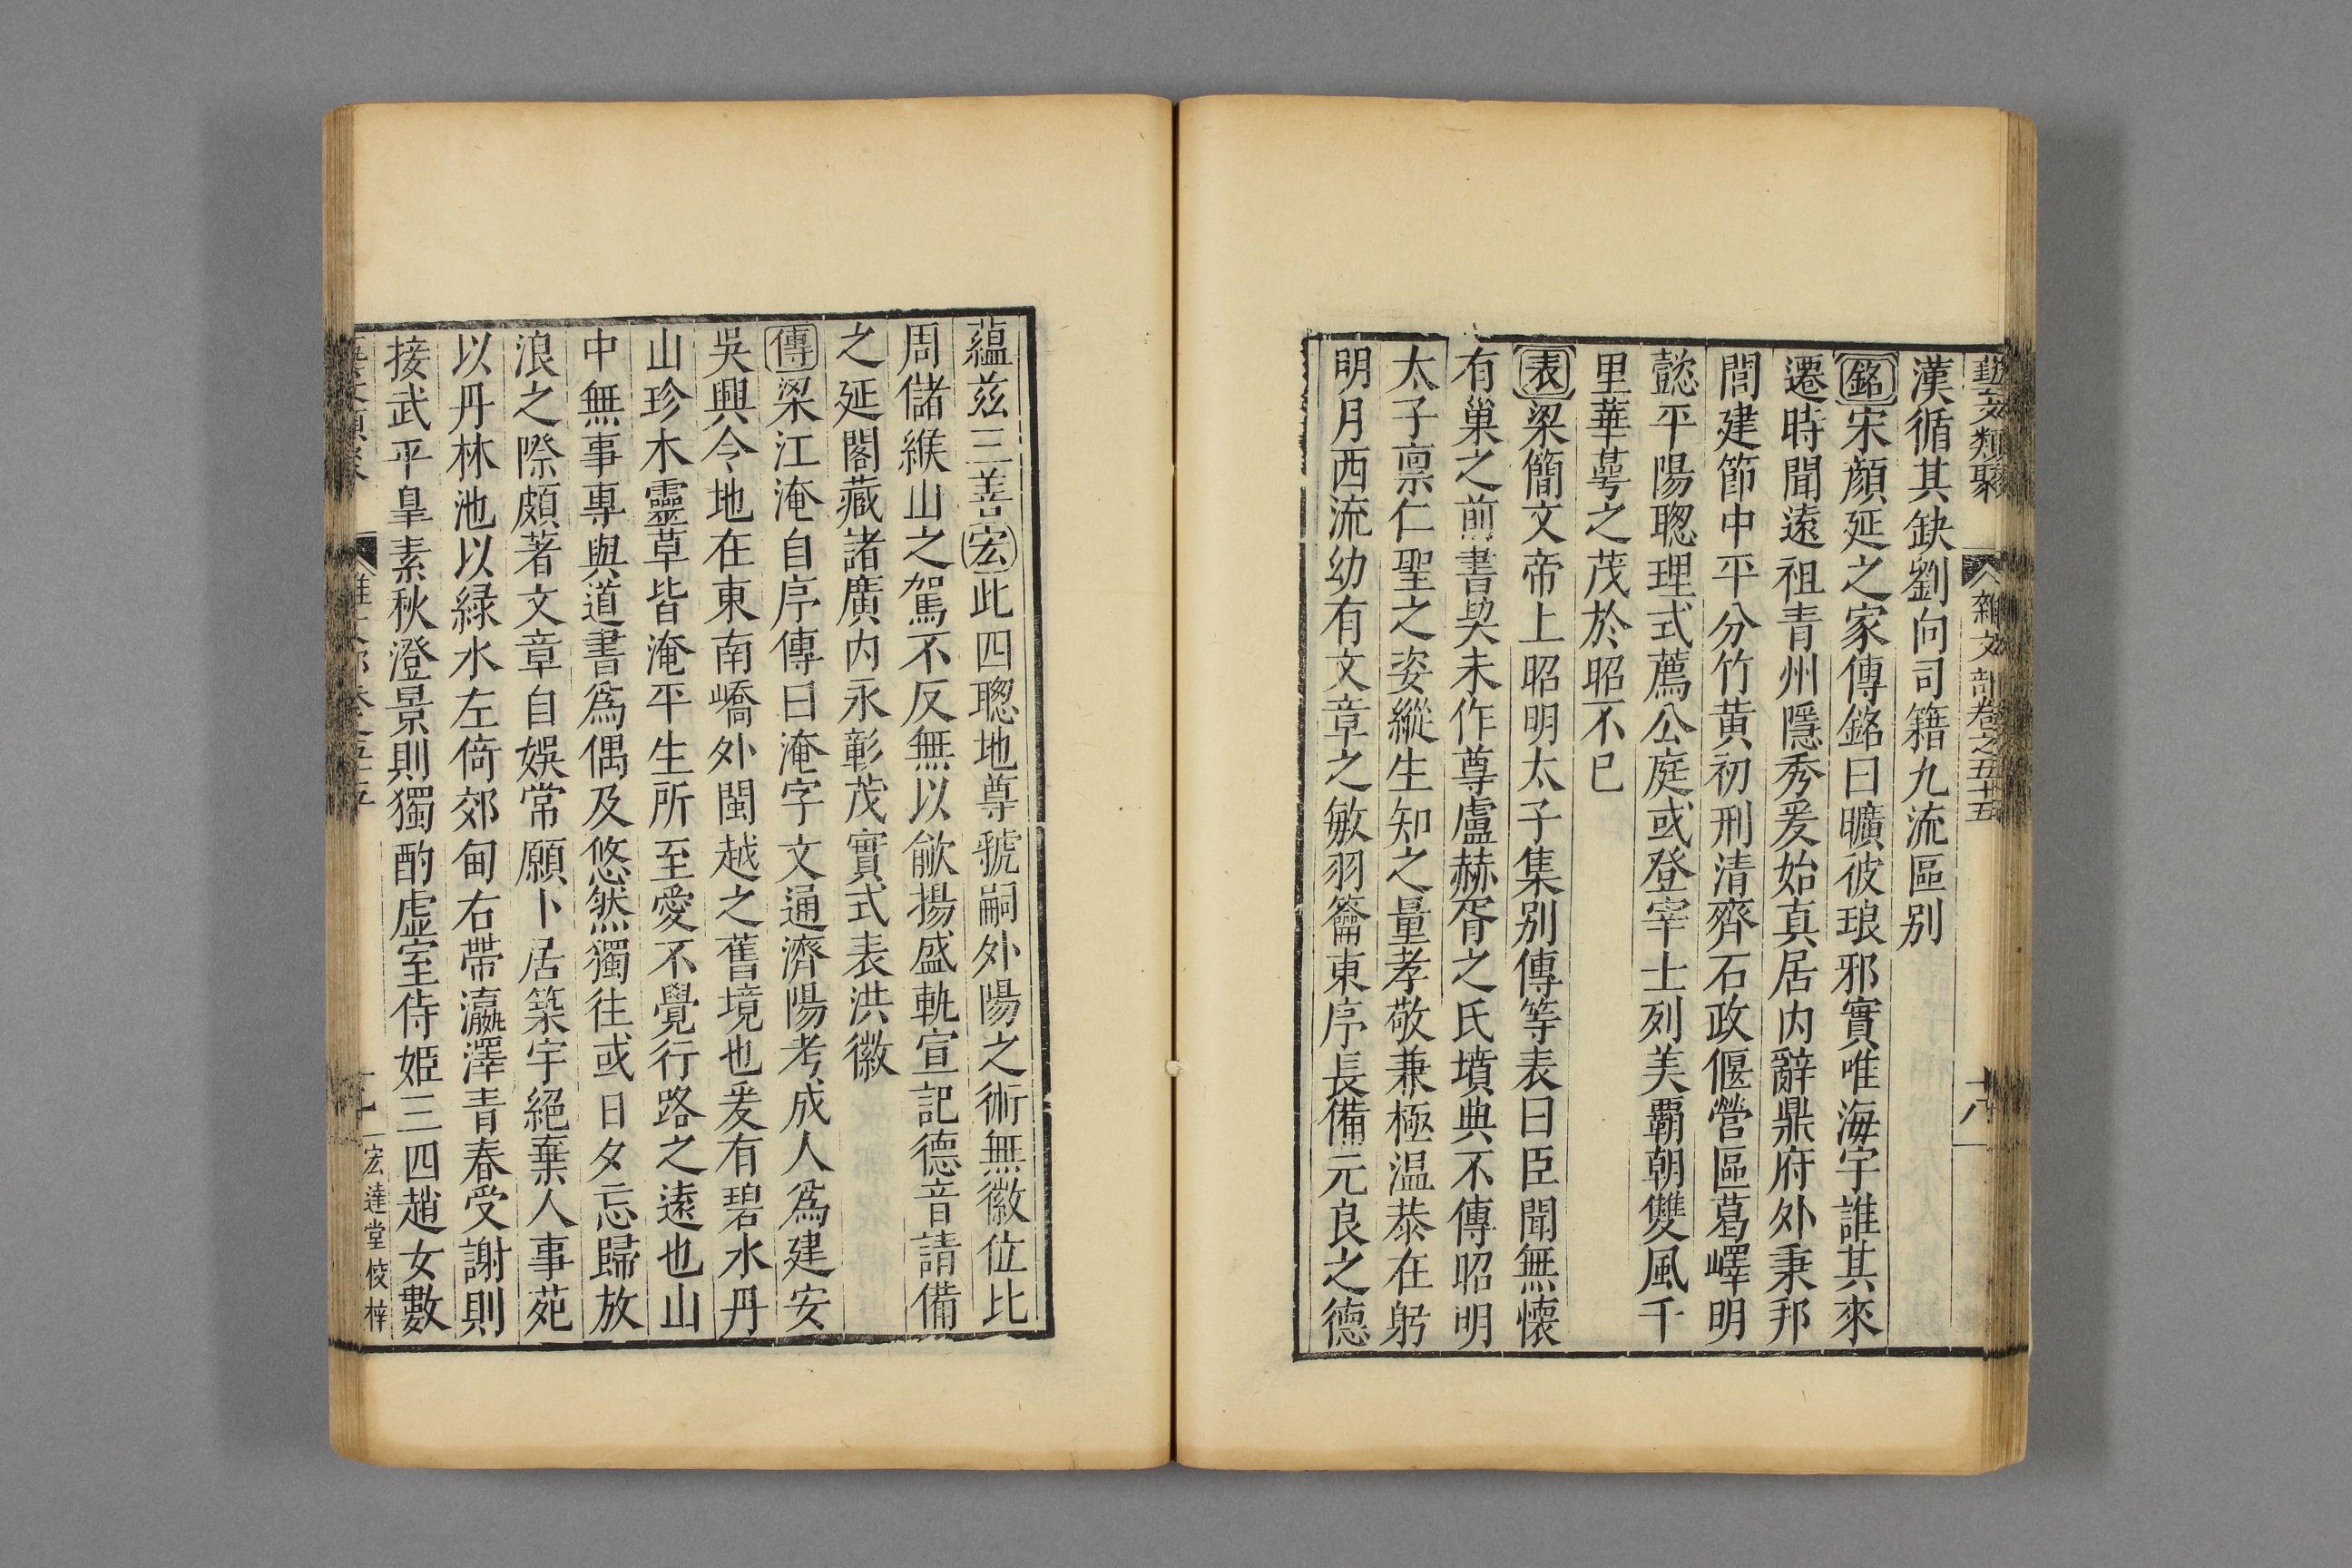 藝文類聚 雜文部卷之五十五 十八
漢循其缺劉向司籍九流區别
銘宋顔延之家傳銘曰曠彼琅邪實唯海宇誰其來
遷時聞遠祖青州隱秀爰始真居内辭鼎府外秉邦
閭建節中平分竹黄初刑清齊石政偃營區葛嶧明
懿平陽聦理式薦公庭或登宰士列美覇朝雙風千
里華萼之茂於昭不已
表梁簡文帝上昭明太子集别傳等表曰臣聞無懷
有巢之前書契未作尊盧赫胥之氏墳典不傳昭明
太子禀仁聖之姿縱生知之量孝敬兼極温恭在躬
明月西流幼有文章之敏羽籥東序長備元良之德
蘊兹三善宏此四聦地尊號嗣外陽之術無徽位比
周儲緱山之駕不反無以歈揚盛軌宣記德音請備
之延閣藏諸廣内永彰茂實式表洪徽
傳梁江淹自序傳曰淹字文通濟陽考成人爲建安
吳興令地在東南嶠外閩越之舊境也爰有碧水丹
山珍木靈草皆淹平生所至愛不覺行路之遠也山
中無事專與道書爲偶及悠然獨往或日夕忘歸放
浪之際頗著文章自娛常願卜居築宇絕棄人事苑
以丹林池以緑水左倚郊甸右帶瀛澤青春受謝則
接武平皐素秋澄景則獨酌虚室侍姬三四趙女數
宏達堂梓